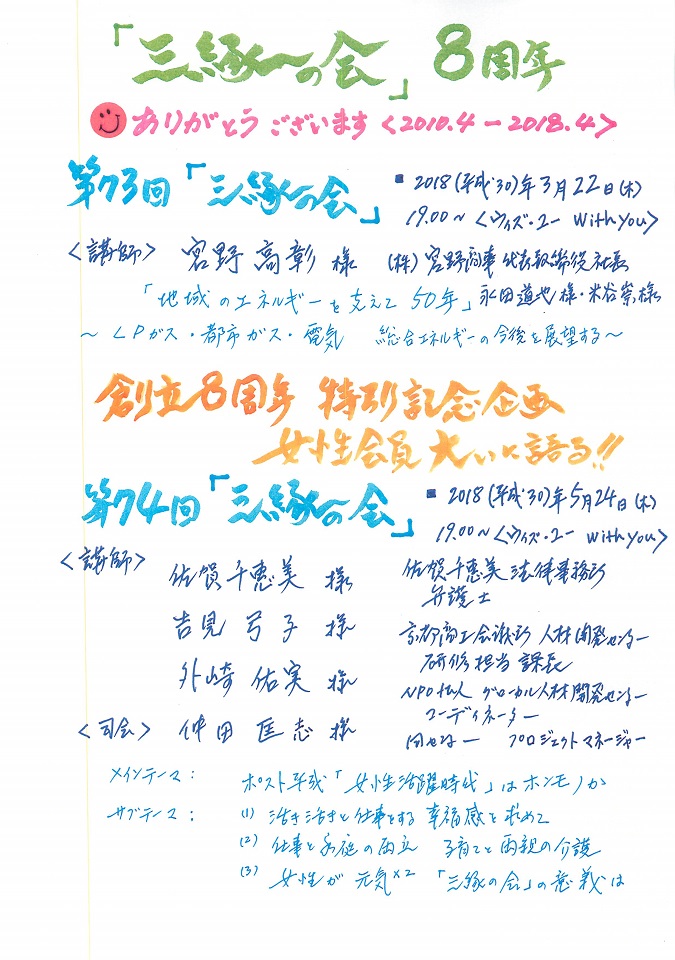 「三縁の会」8周年
ありがとうございます <2010.4 - 2018.4>
第73回「三縁の会」
■ 2018(平成30)年3月22日(木)
19.00~ <ウィズ・ユー With you>
<講師> 宮野 高彰 様 (株)宮野商事 代表取締役社長
「地域のエネルギーを支えて50年」 永田道也様・米谷崇様
~LPガス・都市ガス・電気 総合エネルギーの今後を展望する~
創立8周年 特別記念企画
女性会員 大いに語る!!
第74回「三縁の会」
■ 2018(平成30)年5月24日(木)
19.00~ <ウィズ・ユー With you>
<講師> 佐賀 千惠美 様 佐賀千恵美法律事務所
弁護士
吉見 弓子 様 京都商工会議所 人材開発センター
研修担当 課長
外崎 佑実 様 NPO法人 グローカル人材開発センター
コーディネーター
<司会> 仲田 匡志 様 同センター プロジェクトマネージャー
メインテーマ: ポスト平成「女性活躍時代」はホンモノか
サブテーマ: (1) 活き活きと仕事をする 幸福感を求めて
(2) 仕事と家庭の両立 子育てと両親の介護
(3) 女性が元気×2 「三縁の会」の意義は